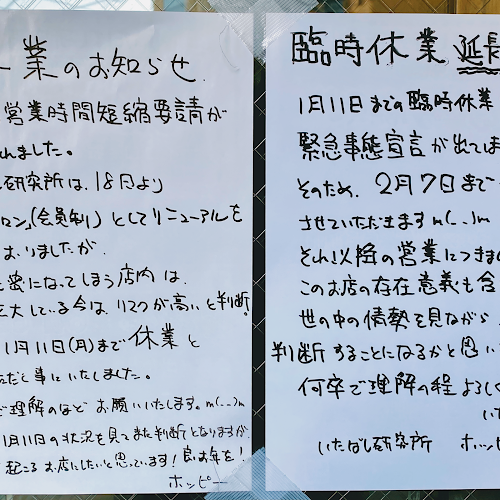 業のお知らせ
営業時間短縮要請が
れました。
研究所は、18日より
ロン(会員制)としてリニューアルを
おりましたが
密になってしまう店内は、
大している今は、リスクが高いと判断。
1月11日(月)まで休業と
だと事にいたしました。
ご理解のほどお願いいたします。m(_ _)m
1月11日の状況を見てまた判断となりますが
起こるお店にしたいと思っています!良お年を!
ホッピー
臨時休業 延長
1月11日までの臨時休業
緊急事態宣言が出てしま
そのため、2月7日まで
させていただきますm(_ _)m
それ以降の営業につきま
このお店の存在意義も含
世の中の情勢を見ながら
判断することになるかと思い
何卒ご理解の程よろし
い
いたばし研究所 ホッピ